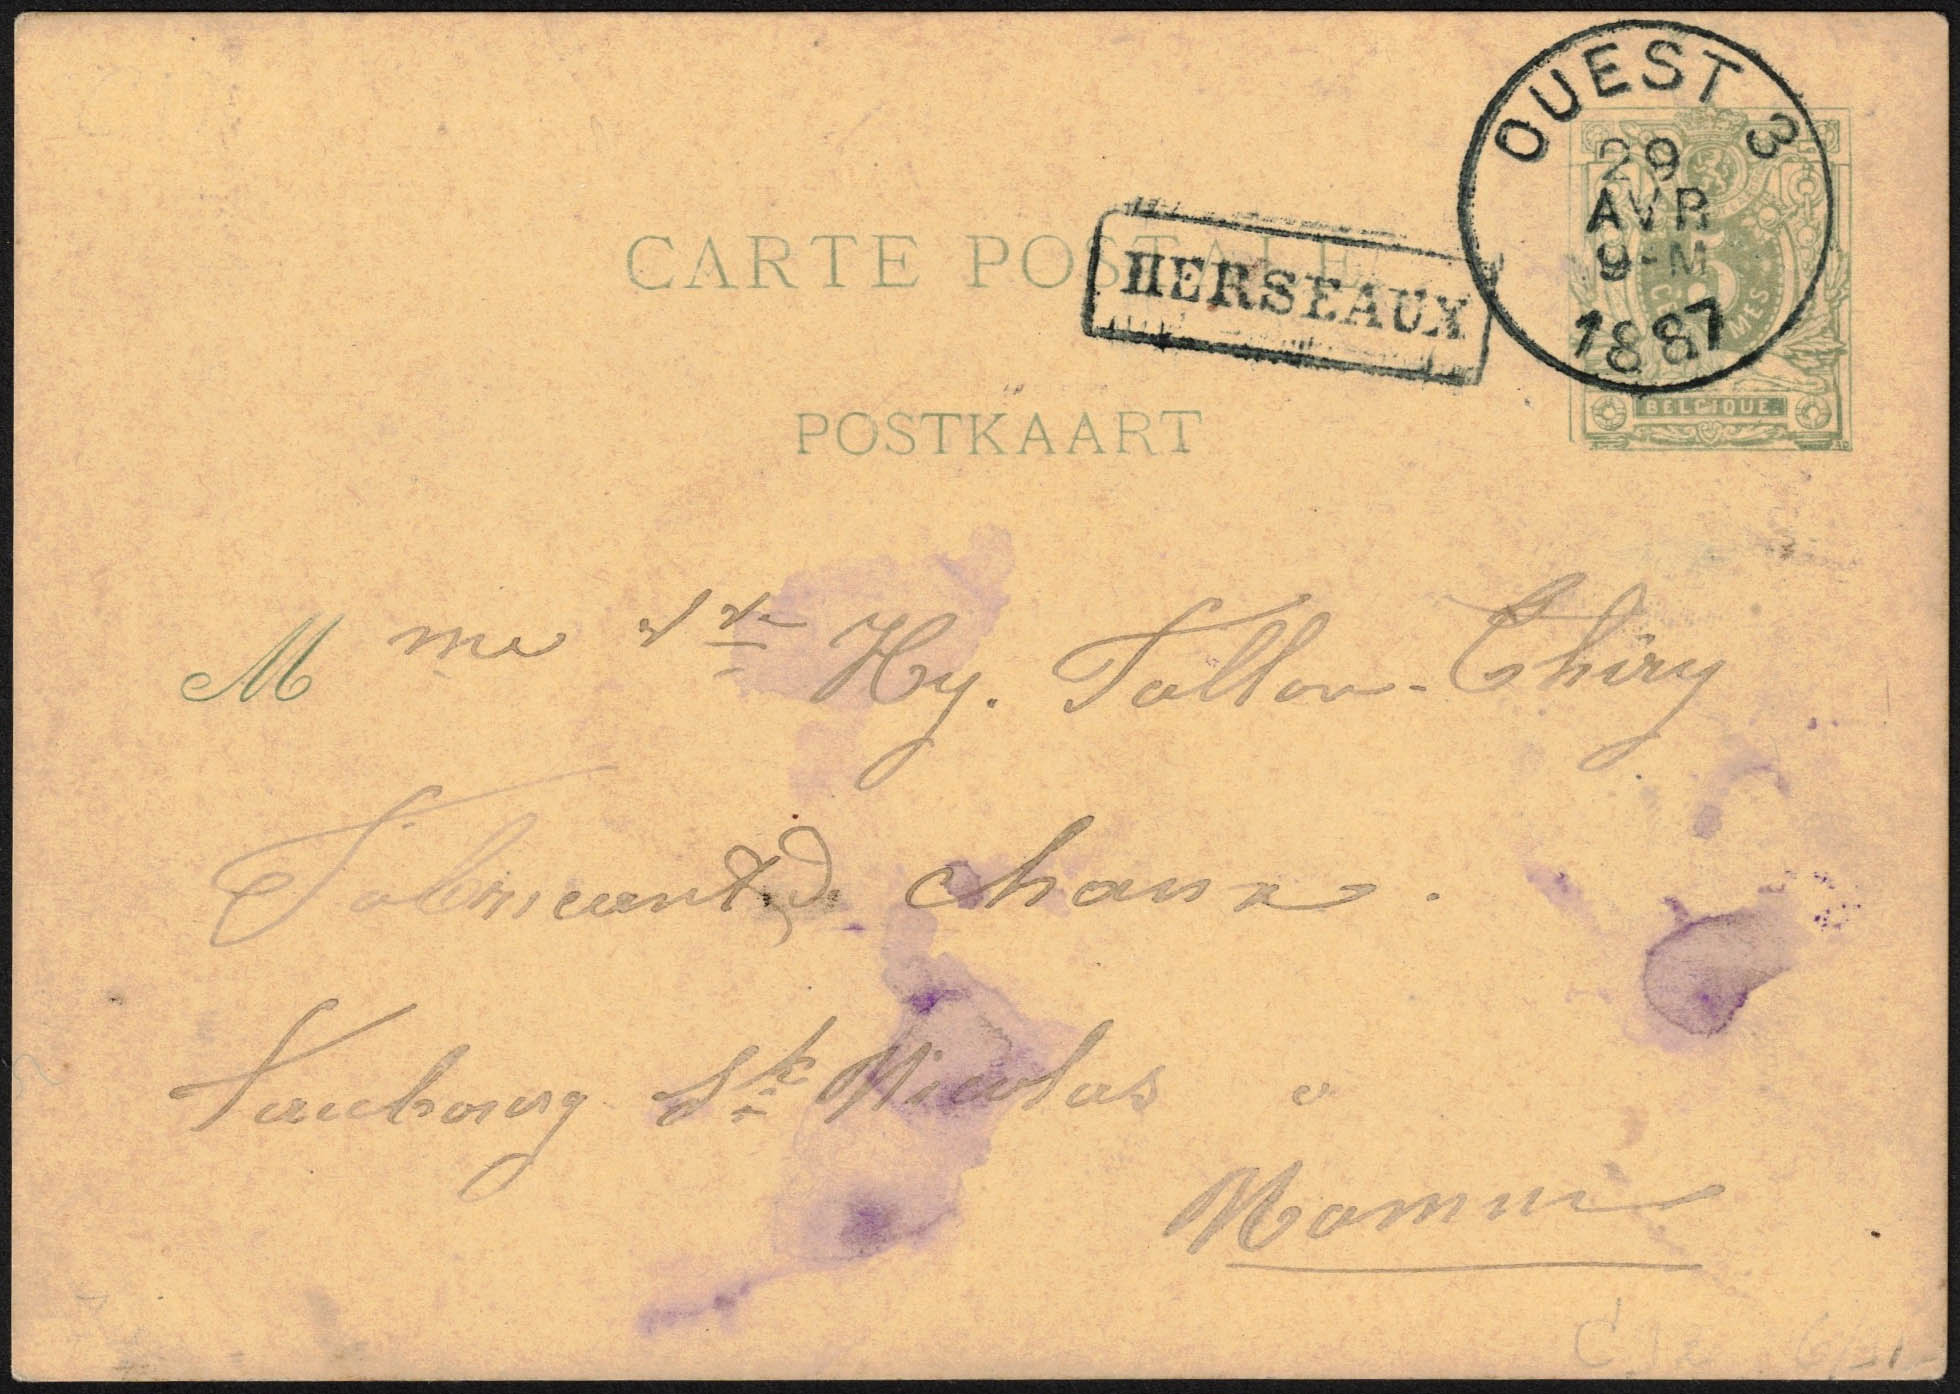 OUEST 3
29
AVR
9-M
1887
5
BELGIQUE
CARTE POSTALE
HERSEAUX
POSTKAART
Mme Vve Hy. Tallon-Thiry
Fabricant de chaux.
Faubourg St Nicolas à
Namur